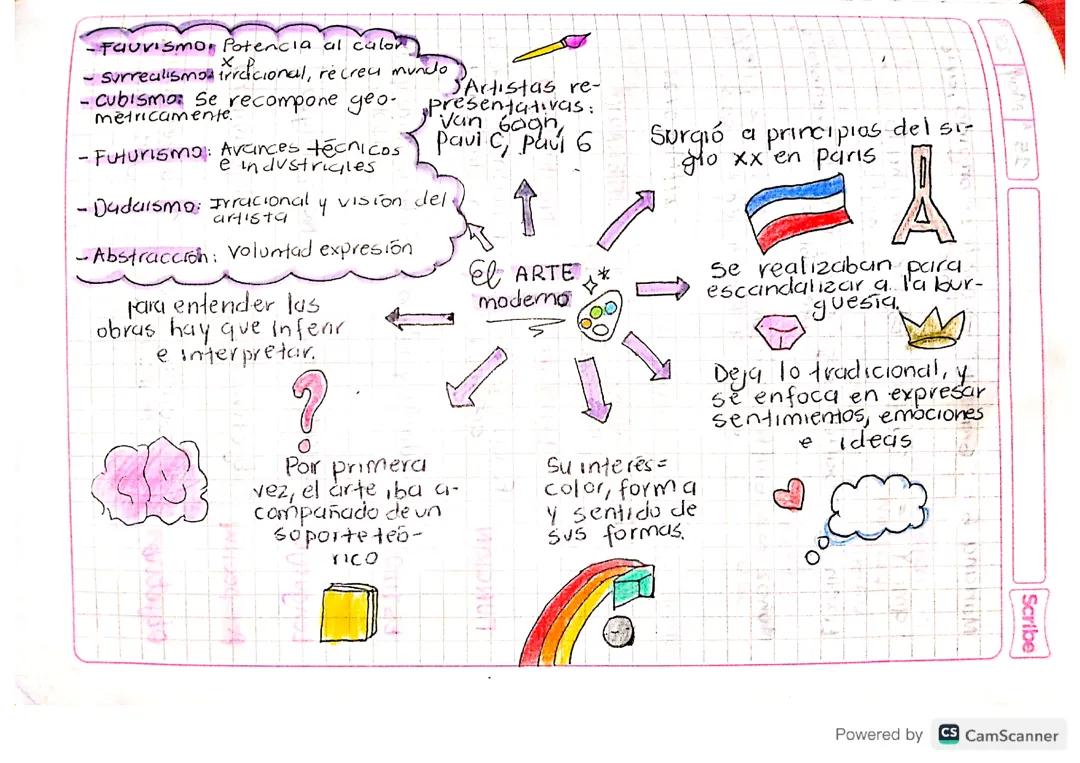 - Fauvismo: Potencia al calor
x p
- Surrealismo: irracional, recrea mundo
- Cubismo: Se recompone geo-
métricamente.
- Futurismo: Avances técnicos
e industriales
- Dadaismo: Irracional y visión del
artista
- Abstracción: Voluntad expresión
Artistas re-
presentativas:
Van Gogh,
Paul C, Paul G
Surgió a principios del si-
glo xx en paris
El ARTE
moderno
Se realizaban para
escandalizar a la bur-
guesía.
Para entender las
obras hay que inferir
e interpretar.
Deja lo tradicional, y
se enfoca en expresar
sentimientos, emociones
e ideas
Por primera
vez, el arte iba a-
compañado de un
soporte teó-
rico
Su interés=
color, forma
y sentido de
sus formas.
Scribe
Powered by CS CamScanner